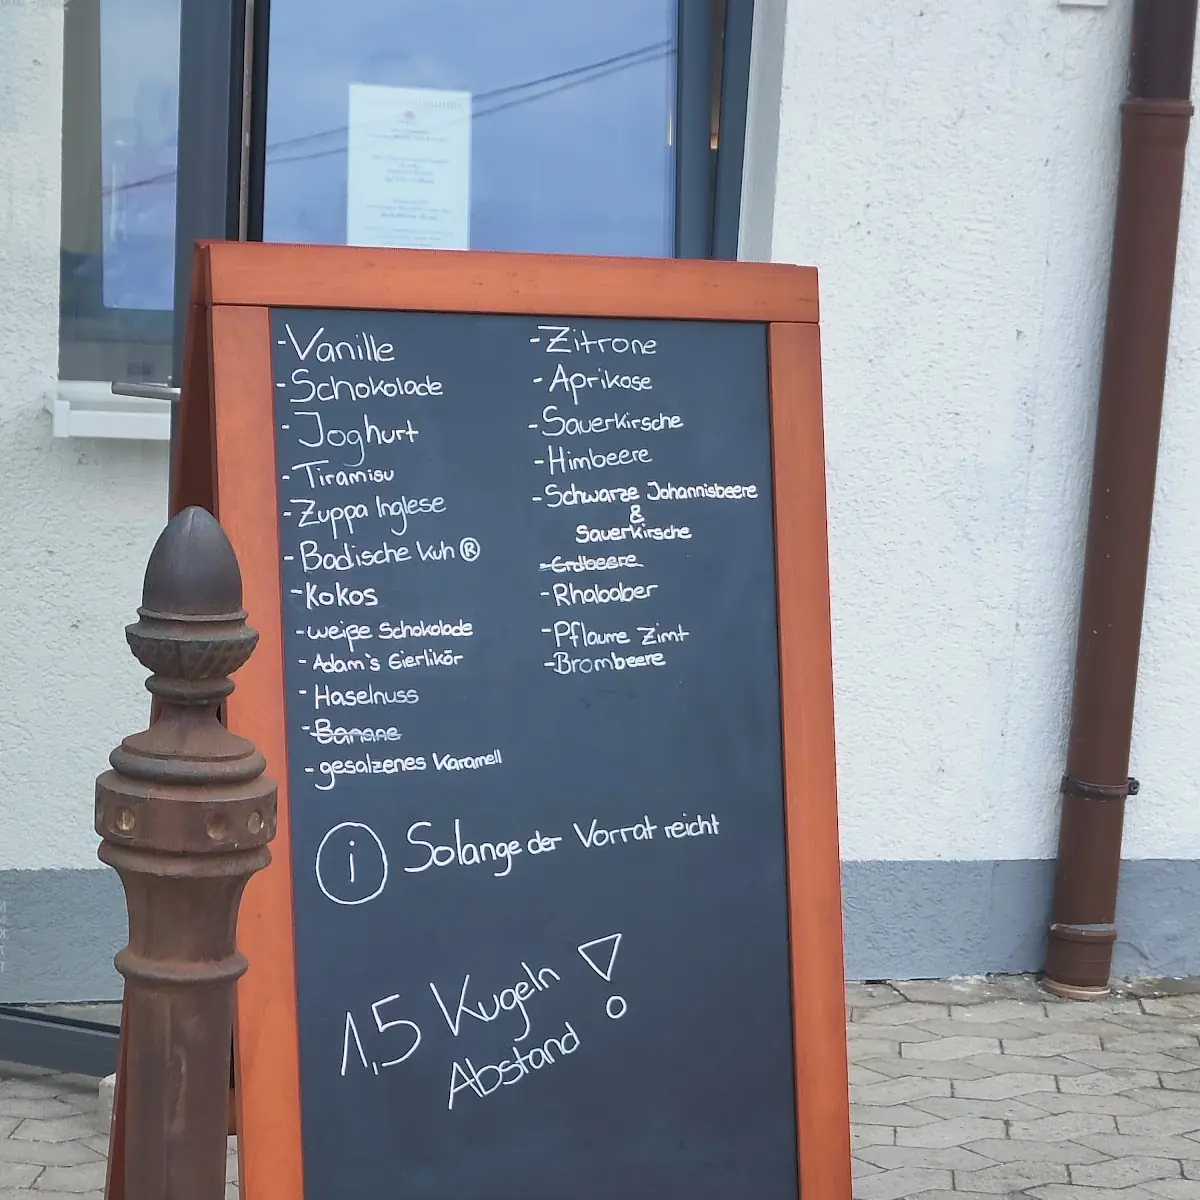 -Vanille
-Schokolade
-Joghurt
-Tiramisu
-Zuppa Inglese
-Badische Kuh®
-Kokos
-weiße Schokolade
-Adam's Eierlikör
-Haselnuss
-Banane
-gesalzenes Karamell
-Zitrone
-Aprikose
-Sauerkirsche
-Himbeere
-Schwarze Johannisbeere
&
Sauerkirsche
-Erdbeere
-Rhababer
-Pflaume Zimt
-Brombeere
i Solange der Vorrat reicht
1,5 Kugeln
Abstand !